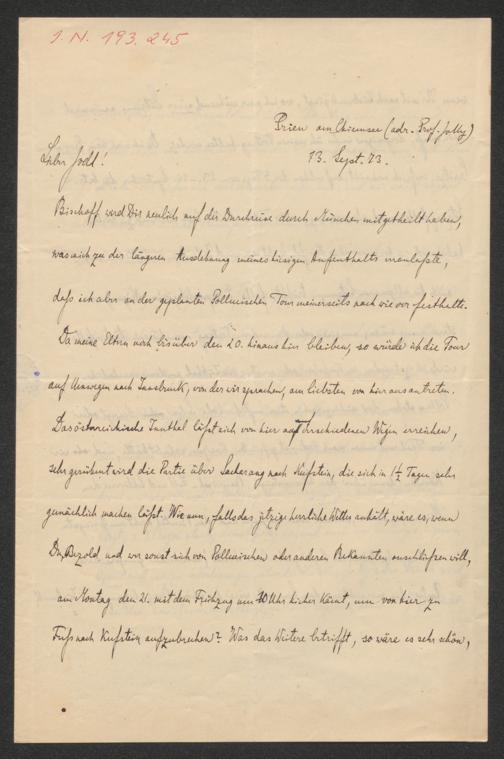 I. N. 193.245
Prien am Chiemsee (adr. Prof. Jolly)
13. Sept. 73.
Lieber Jodl!
Bischoff wird Dir neulich auf der Durchreise durch München mitgetheilt haben,
was mich zu der längeren Ausdehnung meines hiesigen Aufenthalts veranlaßte,
daß ich aber an der geplanten Tour meinerseits nach wie vor festhalte.
Da meine Eltern noch bis über den 20. hinaus hier bleiben, so würde ich die Tour
auf Umwegen nach Innsbruck, von der wir sprachen, am liebsten von hier aus antreten.
Das österreichische Innthal läßt sich von hier auf verschiedenen Wegen erreichen,
sehr gerühmt wird die Partie über Sacharang nach Kufstein, die sich in 1½ Tagen sehr
gemächlich machen läßt. Wie nun, falls das jetzige herrliche Wetter anhält, wäre es, wenn
Du, Bezold und wer sonst sich von oder anderen Bekannten anschließen will,
am Montag den 21. mit dem Frühzug um 10 Uhr hieher kämt, um von hier zu
Fuß nach Kufstein aufzubrechen? Was das Weitere betrifft, so wäre es sehr schön,